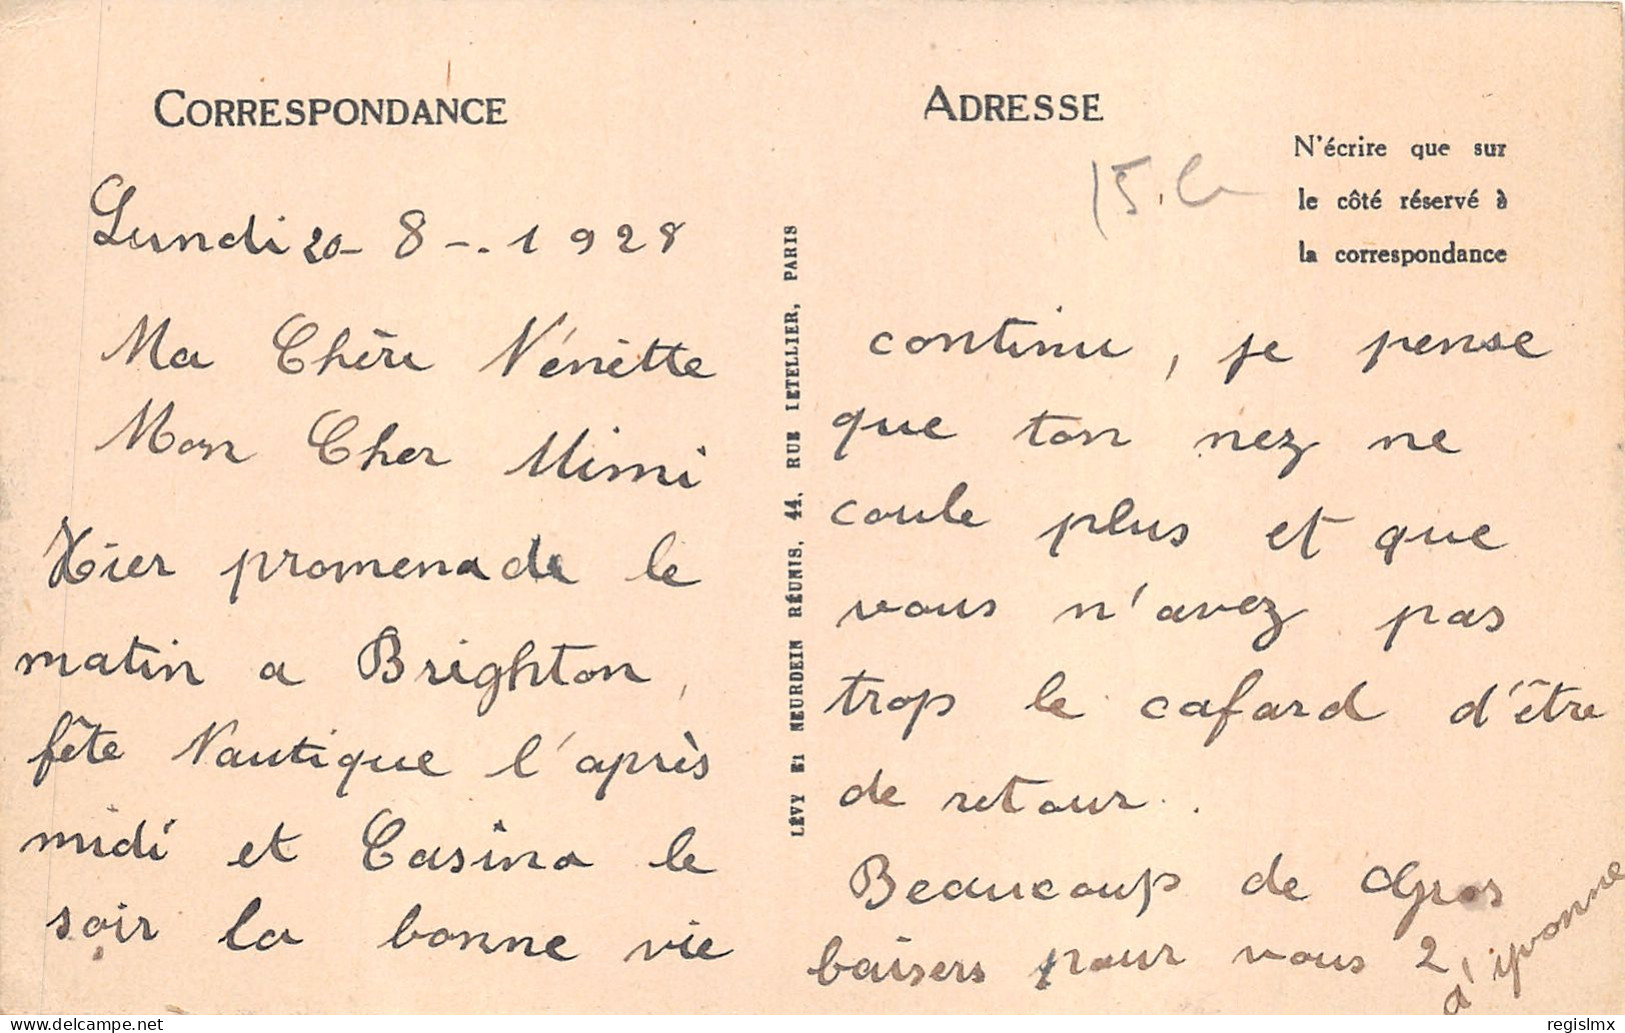 CORRESPONDANCE
Lundi 20-8-.1928
Ma Chère Vénètte
Mon Cher Mimi
Hier promenade le
matin a Brighton,
fête Nautique l'après
midi et Casino le
soir la bonne vie
LÉVY ET NEURDEIN RÉUNIS, 44, RUE LETELLIER, PARIS
ADRESSE
N'écrire que sur
le côté réservé à
la correspondance
continue, je pense
que ton nez ne
coule plus et que
vous n'avez pas
trop le cafard d'être
de retour..
Beaucoup de Gros
baisers pour vous 2
d'yvonne
delcampe.net
regislmx